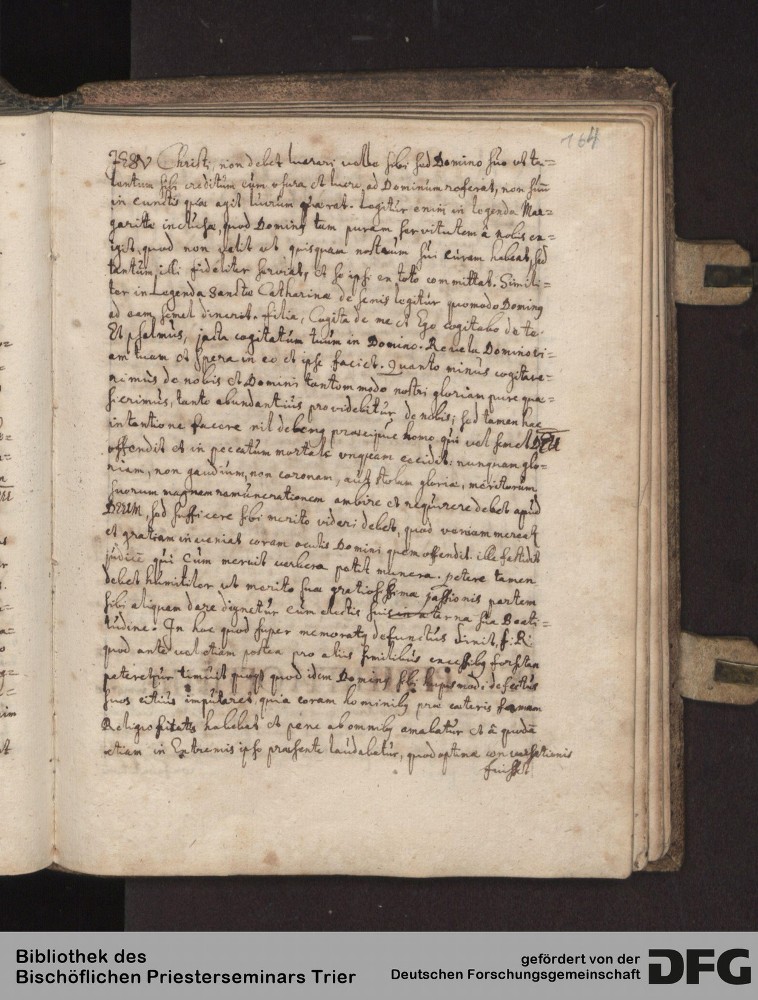 164
JESV Christi, non debet lucrari velle sibi sed Domino suo ut ta=
lentum sibi creditum cum usura et lucro ad Dominum referat, non suum
in cunctis quae agit lucrum quaerat. Legitur enim in legenda Mar=
garittae inclusae, quod Dominus tam puram servitutem à nobis ex=
igit, quod non velit ut quisquam nostrum sui curam habeat, sed
tantum illi fideliter serviat, et se ipse ex toto committat. Simili=
ter in Legenda Sanctae Catharinae de senis legitur quomodo Dominus
ad eam semel dixerit. filia, Cogita de me et Ego cogitabo de te.
Et psalmus, jacta cogitatum tuum in Domino. Revela Domino vi=
am tuam et spera in eo et ipse faciet. Quanto minus cogitave=
rimus de nobis et Domini tantummodo nostri gloriam pure quae=
sierimus, tanto abundantius providebitur de nobis; sed tamen hac
intentione facere nil debemus praecipue homo qui vel semel DEU
offendit et in peccatum mortale unquam cecidit: nunquam glo=
riam, non gaudium, non coronam, aut stolam gloriae, meritorum
suorum magnam remunerationem ambire et requirere debet apud
DEUM, sed sufficere sibi merito videri debet, quod veniam mereat
et gratiam inveniat coram oculis Domini quem offendit. ille
qui Cum meruit verbera petit munera. petere tamen
debet humiliter ut merito suae gratiosissima passionis partem
sibi aliquam dare dignetur cum electis suis in aeterna sua Beati=
tudine. In hac quod super memoratus defunctus dixit, f: R:
quod ante vel etiam postea pro aliis similibus excessibus forsitan
peteretur timuit quod idem Dominus sibi hujusmodi defectus
suos citius imputaret, quia coram hominibus prae caeteris famam
Religiositatis habebat et pene ab omnibus amabatur et à quodā
etiam in Extremis ipso praesente laudabatur, quod optima conversationis
fuisset
Bibliothek des
Bischöflichen Priesterseminars Trier
gefördert von der
Deutschen Forschungsgemeinschaft
DFG